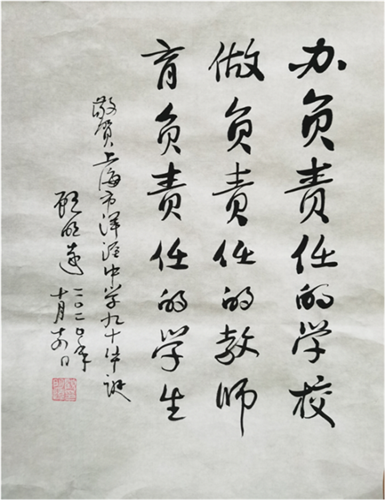 办负责任的学校
做负责任的教师
育负责任的学生
敬贺上海市洋泾中学九十华诞
顾明远
二〇二〇年
十月十四日